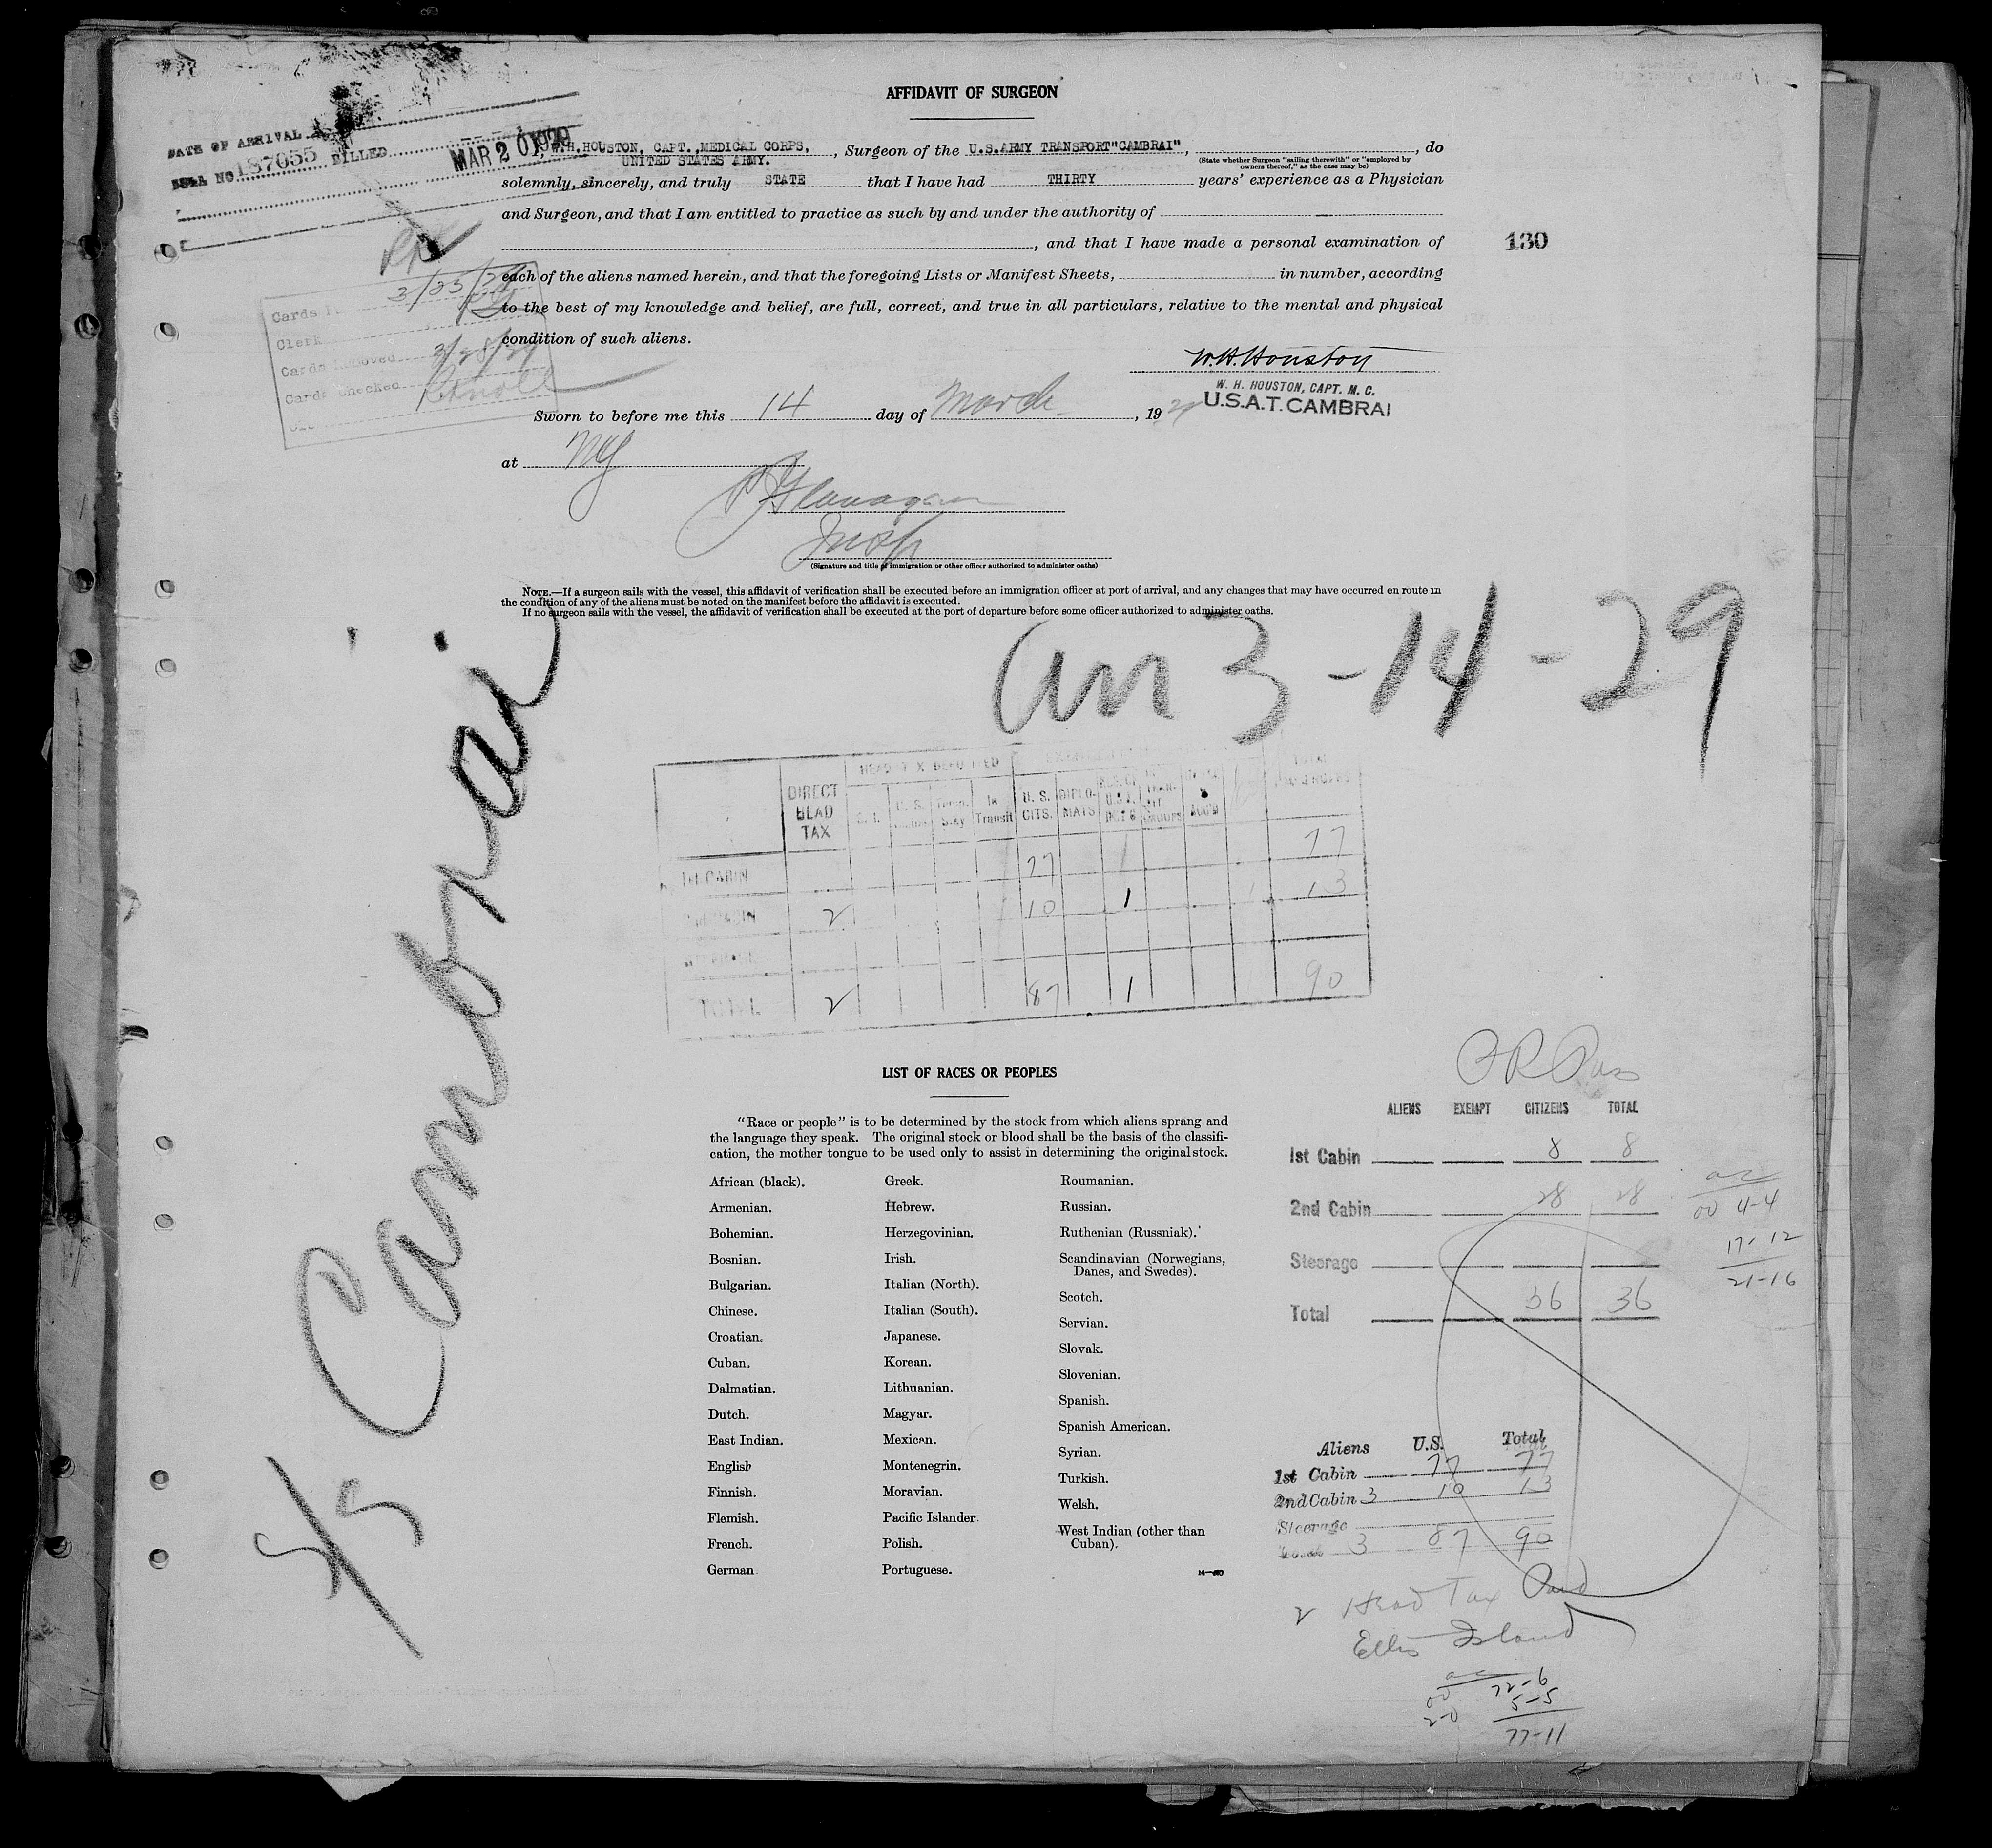 AFFIDAVIT OF SURGEON
DATE OF ARRIVAL
187055 BILLED MAR 20 1929
I, W.H.HOUSTON, CAPT.,MEDICAL CORPS, UNITED STATES ARMY. , Surgeon of the U.S.ARMY TRANSPORT"CAMBRAI", , do
(State whether Surgeon "sailing therewith" or "employed by
owners thereof," as the case may be)
solemnly, sincerely, and truly STATE that I have had THIRTY years' experience as a Physician
and Surgeon, and that I am entitled to practice as such by and under the authority of
, and that I have made a personal examination of
130
each of the aliens named herein, and that the foregoing Lists or Manifest Sheets, in number, according
to the best of my knowledge and belief, are full, correct, and true in all particulars, relative to the mental and physical
condition of such aliens.
Cards
Clerk
Cards 3/28/29
Cards Checked
W.H.Houston
W. H. HOUSTON, CAPT. M. C.
U.S.A.T. CAMBRAI
Sworn to before me this 14 day of March, 1929
at NY
Flanagan
Insp
(Signature and title of immigration or other officer authorized to administer oaths)
NOTE.—If a surgeon sails with the vessel, this affidavit of verification shall be executed before an immigration officer at port of arrival, and any changes that may have occurred en route in
the condition of any of the aliens must be noted on the manifest before the affidavit is executed.
If no surgeon sails with the vessel, the affidavit of verification shall be executed at the port of departure before some officer authorized to administer oaths.
S/S Cambrai
arr 3-14-29
DIRECT HEAD TAX
In Transit
U. S. CITS.
DIPLOMATS
TOTAL
1st CABIN 77 1 77
2nd CABIN 2 10 1 1 13
TOTAL 2 87 1 1 90
LIST OF RACES OR PEOPLES
"Race or people" is to be determined by the stock from which aliens sprang and
the language they speak. The original stock or blood shall be the basis of the classifi-
cation, the mother tongue to be used only to assist in determining the original stock.
African (black).
Armenian.
Bohemian.
Bosnian.
Bulgarian.
Chinese.
Croatian.
Cuban.
Dalmatian.
Dutch.
East Indian.
English
Finnish.
Flemish.
French.
German.
Greek.
Hebrew.
Herzegovinian.
Irish.
Italian (North).
Italian (South).
Japanese.
Korean.
Lithuanian.
Magyar.
Mexican.
Montenegrin.
Moravian.
Pacific Islander.
Polish.
Portuguese.
Roumanian.
Russian.
Ruthenian (Russniak).
Scandinavian (Norwegians,
Danes, and Swedes).
Scotch.
Servian.
Slovak.
Slovenian.
Spanish.
Spanish American.
Syrian.
Turkish.
Welsh.
West Indian (other than
Cuban).
ALIENS EXEMPT CITIZENS TOTAL
1st Cabin 8 8
2nd Cabin 28 28
Steerage
Total 36 36
4-4
17-12
21-16
Aliens U.S. Total
1st Cabin 77 77
2nd Cabin 3 10 13
Steerage
Total 3 87 90
2 Head Tax Paid
Ellis Island
72-6
5-5
77-11